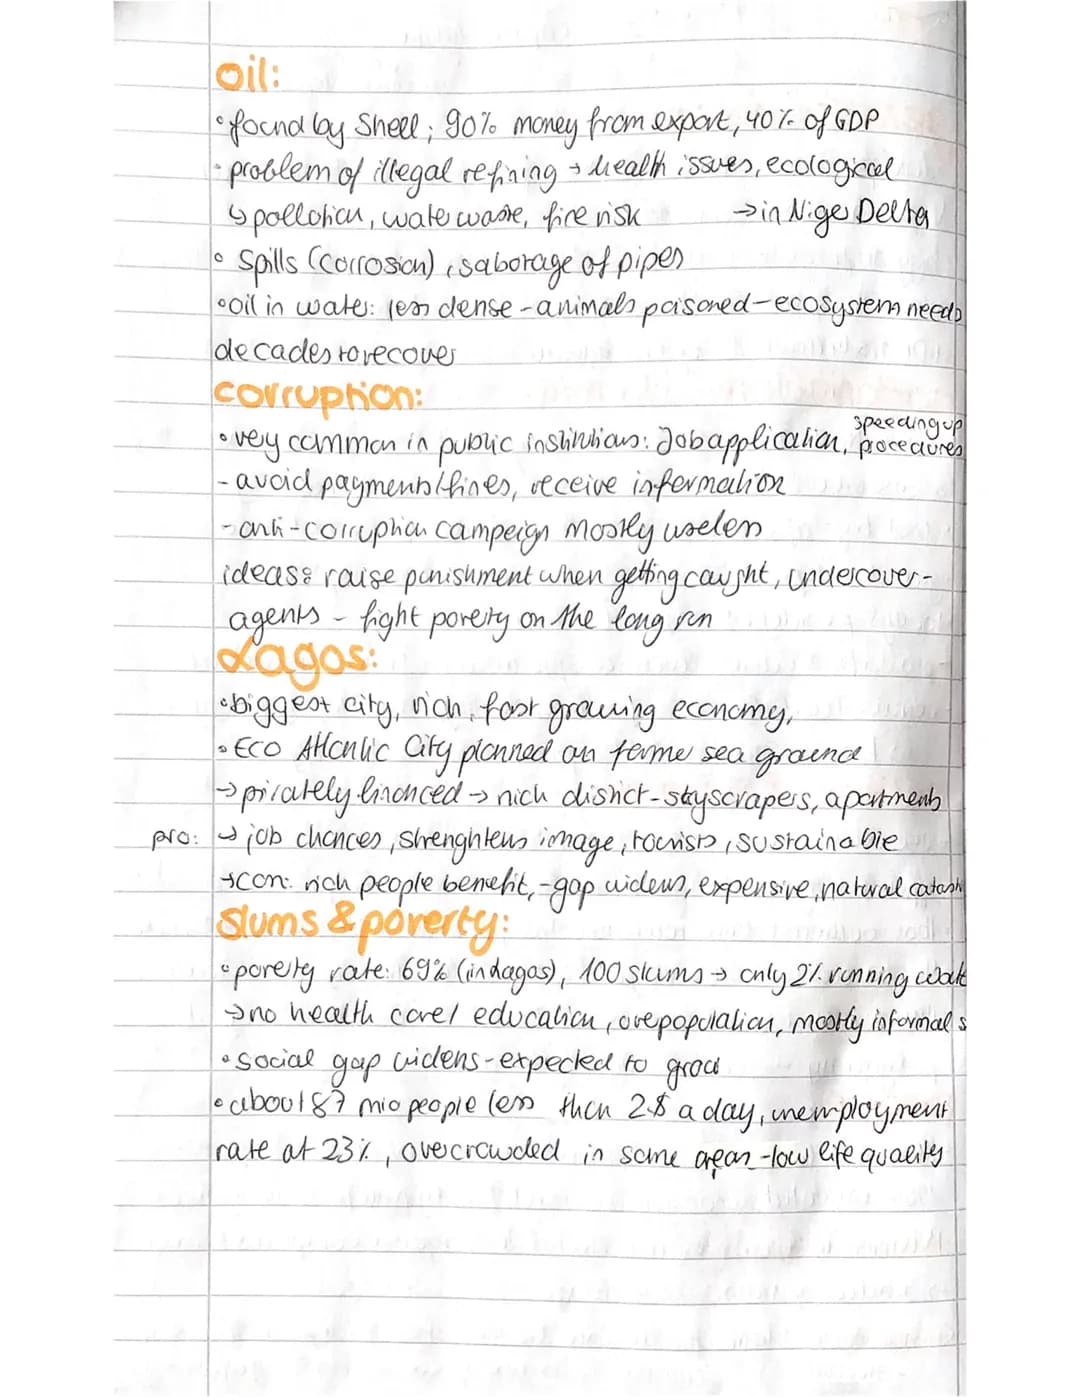 oil:
• found by Shell; 90% money from export, 40% of GDP
- problem of illegal refining → health issues, ecological
↳ pollution, water waste, fire risk → in Niger Delta
• Spills (corrosion), saborage of pipes
• oil in water: less dense - animals poisoned - ecosystem needs
decades to recover
corruption:
• very common in public institutions: Job application, speeding up procedures
- avoid payments/fines, receive information
- anti-corruption campeign mostly useless
ideas: raise punishment when getting caught, undercover-
agents - fight poverty on the long run
Lagos:
• biggest city, rich, fast growing economy,
• Eco Atlantic City planned on forme sea ground
→ privately financed → rich district - skyscrapers, apartments
pro: → job chances, strenghtens image, tourists, sustainable
→ con: rich people benefit, - gap widens, expensive, natural catash
Slums & poverty:
• poverty rate: 69% (in Lagos), 100 slums → only 2% running wate
→ no health care/ education, overpopulation, mostly informal s
• social gap widens - expected to grow
• about 87 mio people less than 2$ a day, unemployment
rate at 23%, overcrowded in some areas - low life quality